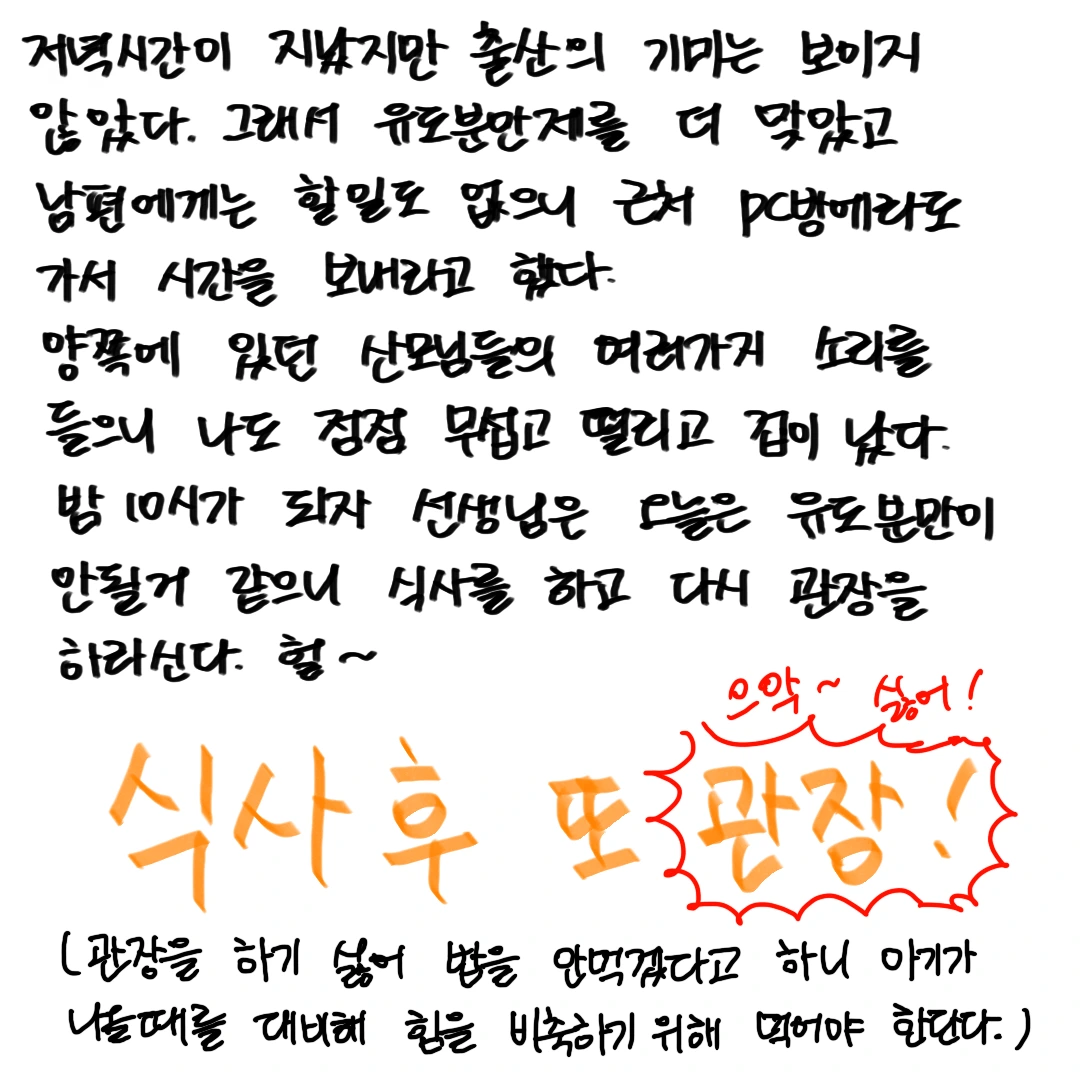 저녁시간이 지났지만 출산의 기미는 보이지
않았다. 그래서 유도분만제를 더 맞았고
남편에게는 할일도 없으니 근처 PC방에라도
가서 시간을 보내라고 했다.
양쪽에 있던 산모님들의 여러가지 소리를
들으니 나도 점점 무섭고 떨리고 겁이 났다.
밤 10시가 되자 선생님은 오늘은 유도분만이
안될거 같으니 식사를 하고 다시 관장을
하라신다. 헐~
으악~ 싫어!
식사후 또 관장!
(관장을 하기 싫어 밥을 안먹겠다고 하니 아기가
나올때를 대비해 힘을 비축하기위해 먹어야 한단다.)